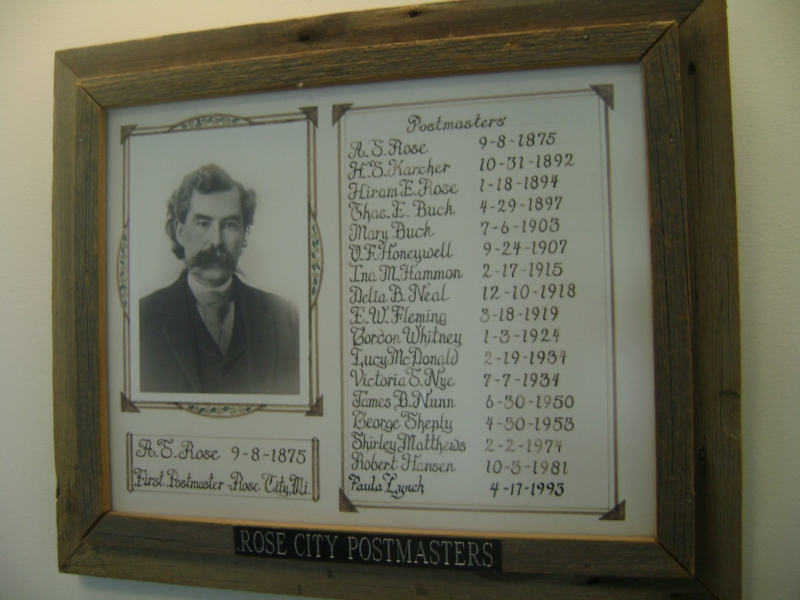 Postmasters
A.S. Rose 9-8-1875
H.S. Karcher 10-31-1892
Hiram E. Rose 1-18-1894
Thos. E. Buck 4-29-1897
Mary Buck 7-6-1903
O.F. Honeywell 9-24-1907
Ina M. Hammon 2-17-1915
Delia B. Neal 12-10-1918
E.W. Fleming 3-18-1919
Gordon Whitney 1-3-1924
Lucy McDonald 2-19-1934
Victoria S. Nye 7-7-1934
James B. Nunn 6-30-1950
George Sheply 4-30-1953
Shirley Matthews 2-2-1974
Robert Hansen 10-3-1981
Paula Lynch 4-17-1993
A.S. Rose 9-8-1875
First Postmaster-Rose City, Mi.
ROSE CITY POSTMASTERS